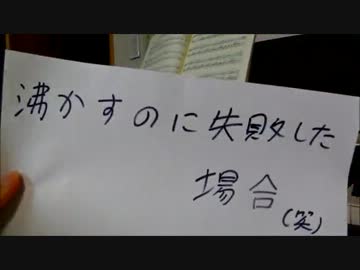 沸かすのに失敗した
場合
(笑)